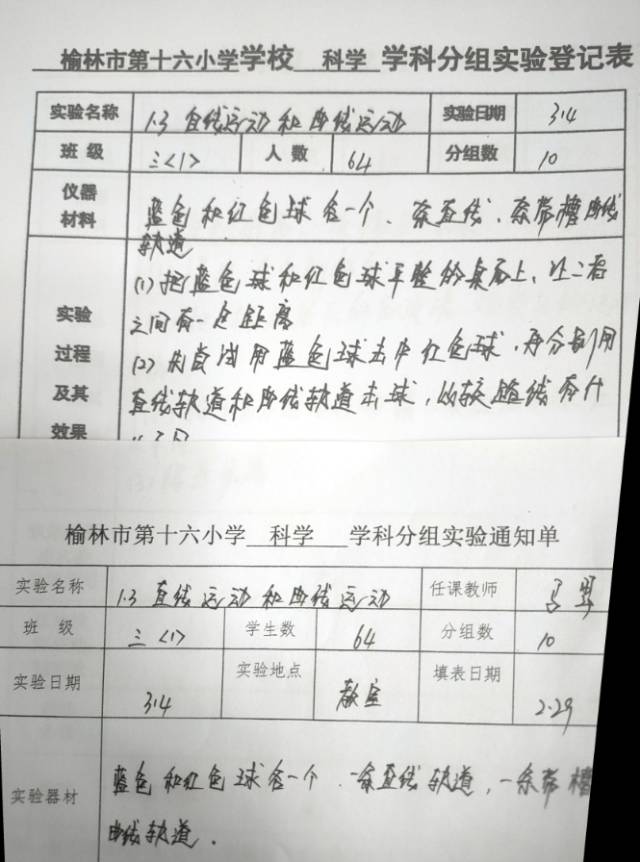 榆林市第十六小学学校 科学 学科分组实验登记表
实验名称 1.3 直线运动和曲线运动 实验日期 3.4
班级 三<1> 人数 64 分组数 10
仪器材料 蓝色和红色球各一个、一条直线、一条带槽曲线
轨道
实验过程及其效果
(1) 把蓝色球和红色球平整的桌面上,让二者
之间有一定距离
(2) 先尝试用蓝色球击中红色球,再分别用
直线轨道和曲线轨道击球,比较路线有什
么不同
榆林市第十六小学 科学 学科分组实验通知单
实验名称 1.3 直线运动和曲线运动 任课教师 马
班级 三<1> 学生数 64 分组数 10
实验日期 3.4 实验地点 教室 填表日期 2.29
实验器材 蓝色和红色球各一个、一条直线轨道,一条带槽
曲线轨道.